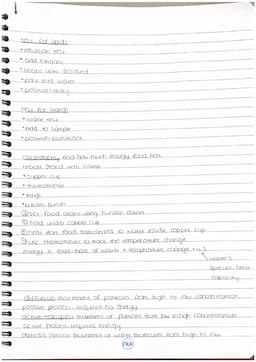 test for lipids
• emulsion test
• add ethanol
• shake until dissolved
• pour into water
• positive=milky
test for starch
• iodine test
• add to sample
• positive=blue/black
calorimetry find how much energy food has
• retort stand with clamp
• copper cup
• thermometer
• tongs
• bunsen burner
① set food alight using bunsen burner
② hold under copper cup
③ heat from food transferred to water inside copper cup
④ use thermometer to track the temperature change
energy in food=mass of water × temperature change × 4.2
water's
specific heat
capacity
diffusion movement of particles from high to low concentration
passive process-requires no energy
active transport movement of particles from low to high concentration
active process-requires energy
osmosis passive movement of water molecules from high to low